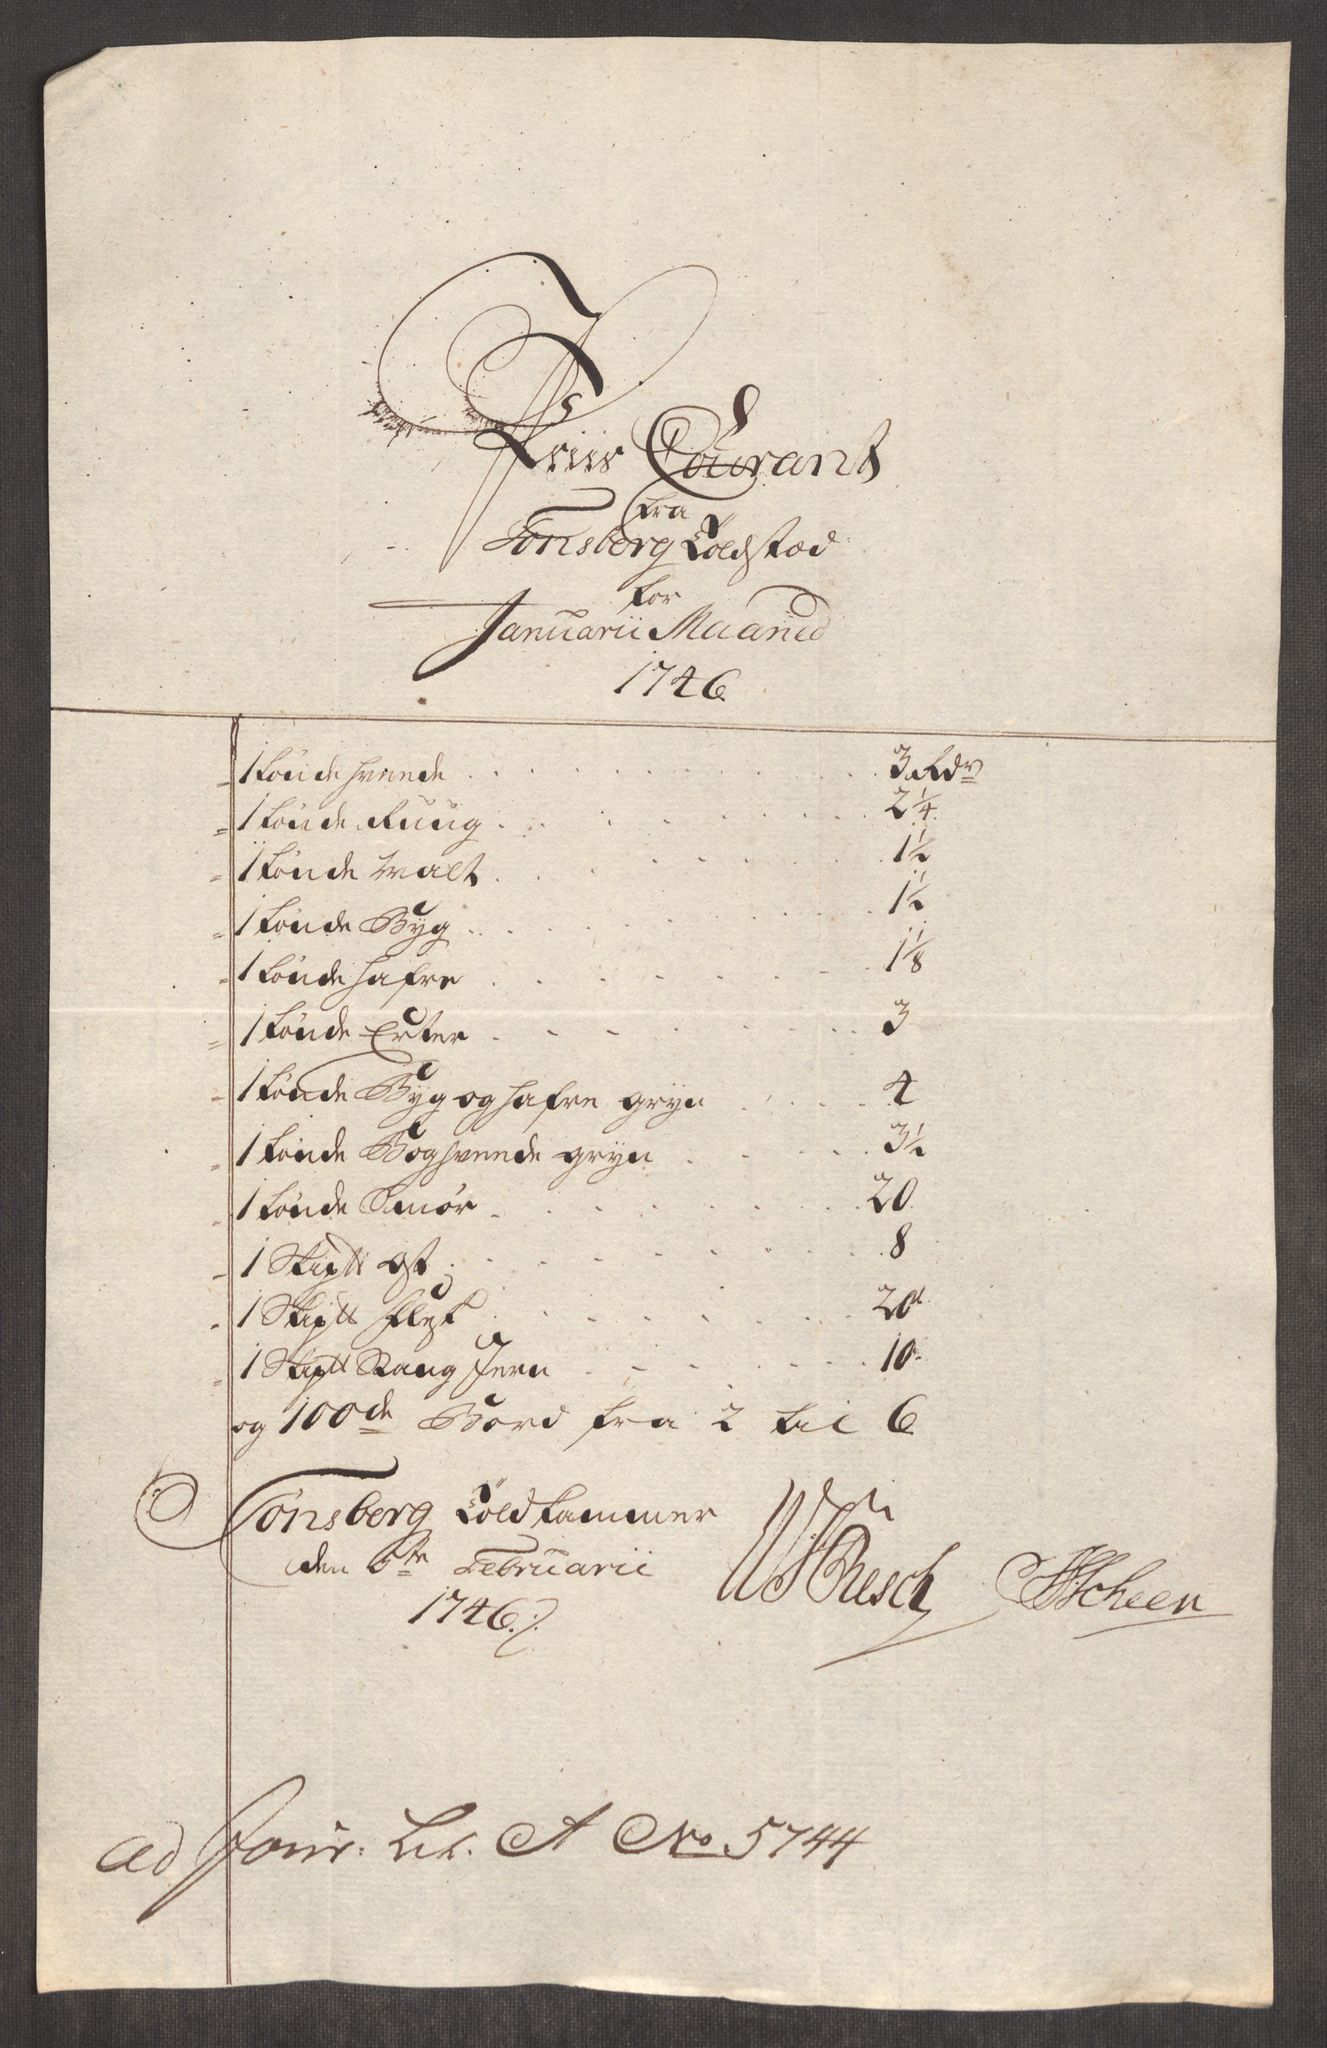 Priis Courant
fra
Tönsberg Toldstæd
for
Januarii Maaned
1746
1 Tönde Hveede 3 Rdr
1 Tönde Ruug 2 1/4
1 Tönde Malt 1 1/2
1 Tönde Byg 1 1/2
1 Tönde Hafre 1 1/8
1 Tönde Erter 3
1 Tönde Byg og Hafre gryn 4
1 Tönde Boghveede gryn 3 1/2
1 Tönde Smör 20
1 Skip℔ Ost 8
1 Skip℔ Flesk 20
1 Skip℔ Stang Jern 10
og 100de Bord fra 2 til 6
Tönsberg Toldkammer
den 6te Februarii
1746
Resch Scheen
ad Jour: Lit. A No 5744